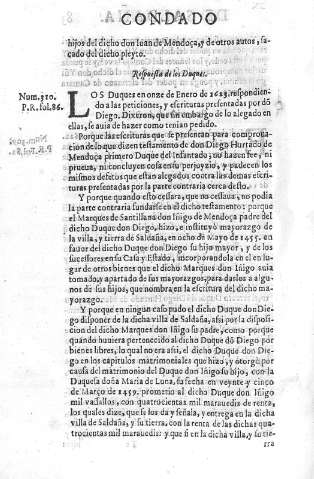 CONDADO
hijos del dicho don Iuan de Mendoça, y de otros autos, sa-
cado del dicho pleyto.
Respuesta de los Duques.
Num. 310.
P.R. fol. 86.
LOS Duques en onze de Enero de 1623. respondien-
do a las peticiones, y escrituras presentadas por dõ
Diego. Dixeron, que sin embargo de lo alegado en
ellas, se auia de hazer como tenia pedido.
Porque las escrituras que se presentan para comproua-
cion de lo que dizen testamento de don Diego Hurtado de
Mendoça primero Duque del Infantado, no hazen fee, ni
prueua, ni concluyen cosa en su perjuyzio, y padecen los
mismos defetos que estan alegados contra las demas escri-
turas presentadas por la parte contraria cerca desto.
Y porque quando esto cessara, que no cessaua, no podia
la parte contraria fundarse en el dicho testamento: porque
el Marques de Santillana don Iñigo de Mendoça padre del
dicho Duque don Diego, hizo, e instituyò mayorazgo de
la villa, y tierra de Saldaña, en ocho de Mayo de 1455. en
fauor del dicho Duque don Diego su hijo mayor, y de los
sucessores en su Casa y Estado, incorporandola en el en lu-
gar de otros bienes que el dicho Marques don Iñigo auia
tomado, y apartado de su mayorazgo, para darlos a algu-
nos de sus hijos, que nombra en la escritura del dicho ma-
yorazgo.
Y porque en ningun caso pudo el dicho Duque don Die-
go disponer de la dicha villa de Saldaña, assi por la disposi-
cion del dicho Marques don Iñigo su padre, como porque
quando huuiera pertenecido al dicho Duque dõ Diego por
bienes libres, lo qual no era assi, el dicho Duque don Die-
go en los capitulos matrimoniales que hizo, y otorgò por
causa del matrimonio del Duque don Iñigo su hijo, con la
Duquesa doña Maria de Luna, su fecha en veynte y cinco
de Março de 1459. prometio al dicho Duque don Iñigo
mil vassallos, con quatrocientas mil marauedis de renta,
los quales dize, que se los da y señala, y entrega en la dicha
villa de Saldaña, y su tierra, con la renta de las dichas qua-
trocientas mil marauedis: y que si en la dicha villa, y su tie-
rra